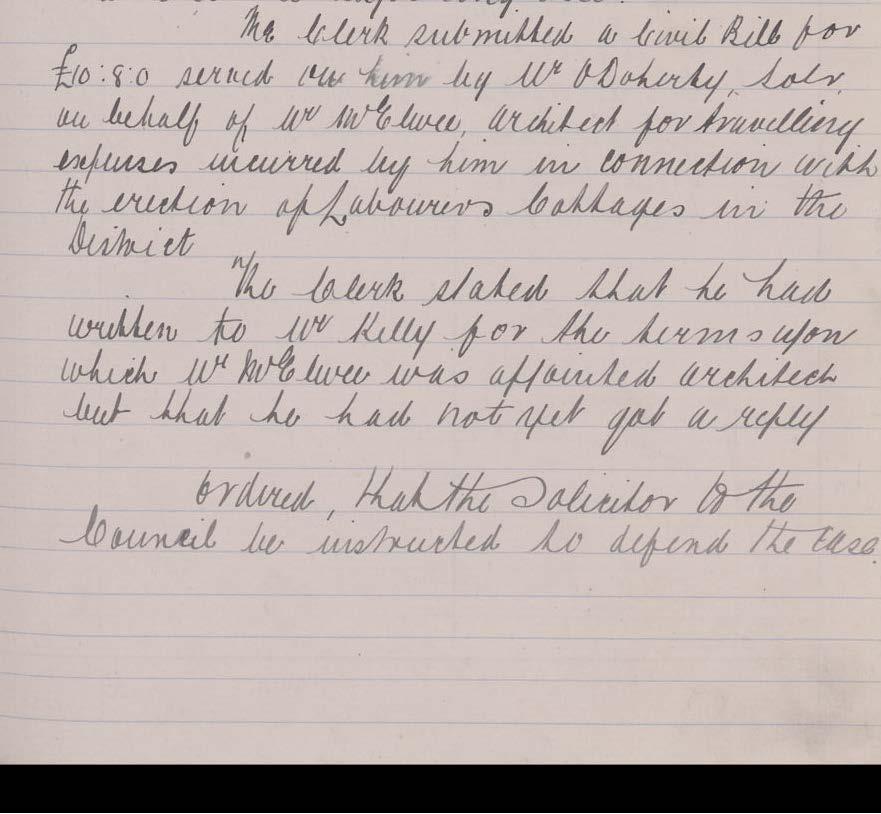 The Clerk submitted a Civil Bill for
£10:8:0 served on him by Mr O'Doherty, Solr,
on behalf of Mr McElwee, architect for travelling
expenses incurred by him in connection with
the erection of Labourers Cottages in the
District
The Clerk stated that he had
written to Mr Kelly for the terms upon
which Mr McElwee was appointed architect
but that he had not yet got a reply
Ordered, that the Solicitor to the
Council be instructed to defend the case